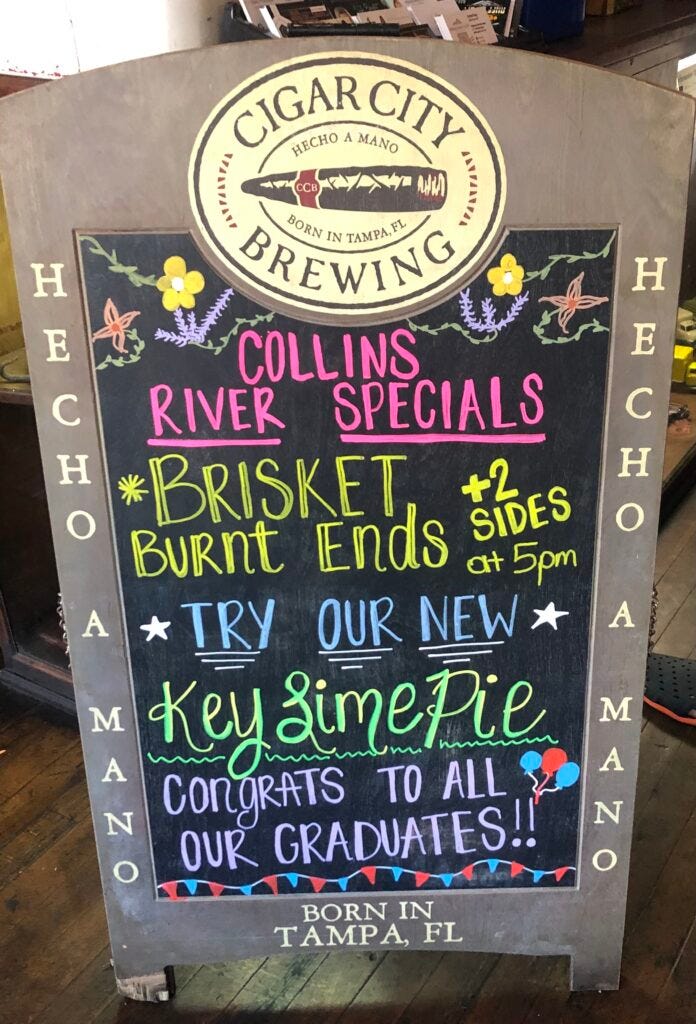 CIGAR CITY
HECHO A MANO
CCB
BORN IN TAMPA, FL
BREWING
HECHO A MANO
HECHO A MANO
COLLINS
RIVER SPECIALS
*BRISKET
BURnt EndS
+2
SIDES
at 5pm
TRY OUR NEW
Key Lime Pie
COngRATS TO ALL
OUR GRADUATES!!
BORN IN
TAMPA, FL